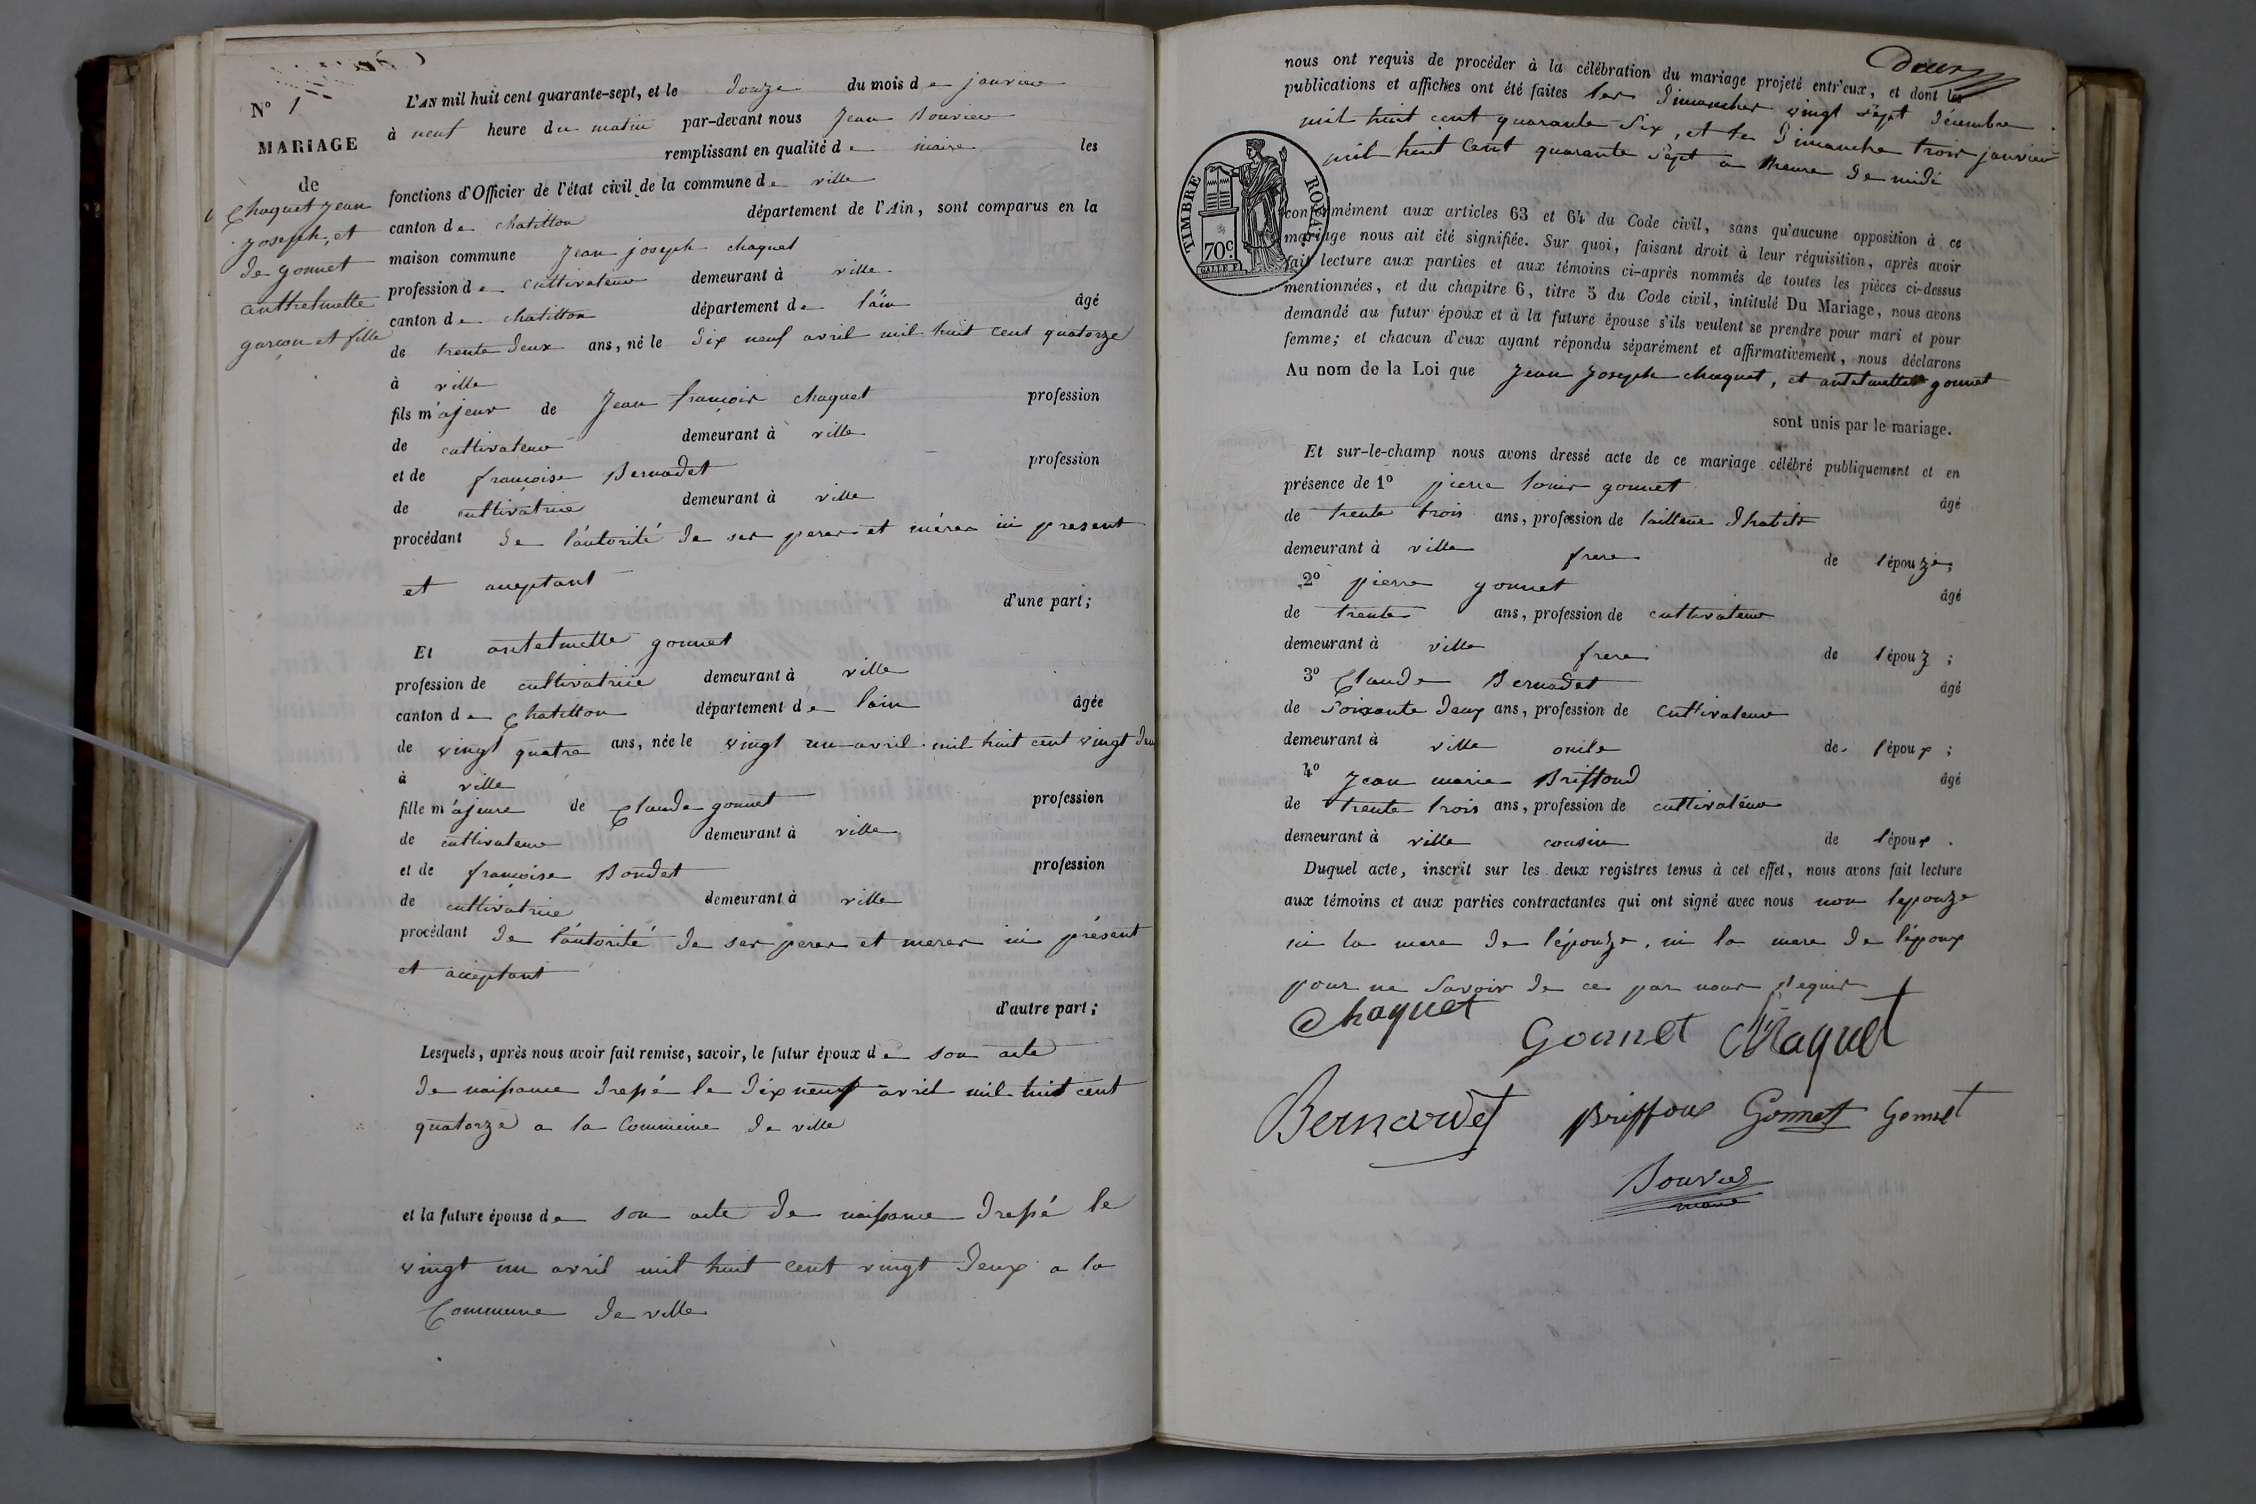 N° 1
MARIAGE
de
Chaquet Jean
Joseph, et
de gonnet
anthelmette
garcon et fille
L'AN mil huit cent quarante-sept, et le douze du mois de janvier
à neuf heure du matin par-devant nous Jean Bouvier
remplissant en qualité de maire les
fonctions d'Officier de l'état civil de la commune de ville
canton de chatillon département de l'Ain, sont comparus en la
maison commune Jean joseph chaquet
profession de cultivateur demeurant à ville
canton de chatillon département de l'áin âgé
de trente deux ans, né le dix neuf avril mil huit cent quatorze
à ville
fils majeur de Jean françois chaquet profession
de cultivateur demeurant à ville
et de françoise Bernadet profession
de cultivatrice demeurant à ville
procédant de l'autorité de ses peres et méres ici present
et aceptant
d'une part;
Et antelmette gonnet
profession de cultivatrice demeurant à ville
canton de Chatillon département de lain âgée
de vingt quatre ans, née le vingt un avril mil huit cent vingt deux
à ville
fille majeure de Claude gonnet profession
de cultivateur demeurant à ville
et de françoise Boudet profession
de cultivatrice demeurant à ville
procédant de l'autorité de ses peres et meres ici présent
et aceptant
d'autre part;
Lesquels, après nous avoir fait remise, savoir, le futur époux de son acte
de naissance dressé le dix neuf avril mil huit cent
quatorze a la Commune de ville
et la future épouse de son acte de naissance dressé le
vingt un avril mil huit cent vingt deux a la
Commune de ville
deux
nous ont requis de procéder à la célébration du mariage projeté entr'eux, et dont les
publications et affiches ont été faites les dimanches vingt sept décembre
mil huit cent quarante six, et le dimanche trois janvier
mil huit cent quarante sept a lheure de midi
TIMBRE ROYAL.
70c.
conformément aux articles 63 et 64 du Code civil, sans qu'aucune opposition à ce
mariage nous ait été signifiée. Sur quoi, faisant droit à leur réquisition, après avoir
fait lecture aux parties et aux témoins ci-après nommés de toutes les pièces ci-dessus
mentionnées, et du chapitre 6, titre 5 du Code civil, intitulé Du Mariage, nous avons
demandé au futur époux et à la future épouse s'ils veulent se prendre pour mari et pour
femme; et chacun d'eux ayant répondu séparément et affirmativement, nous déclarons
Au nom de la Loi que Jean Joseph chaquet, et antelmette gonnet
sont unis par le mariage.
Et sur-le-champ nous avons dressé acte de ce mariage célébré publiquement et en
présence de 1° pierre louis gonnet âgé
de trente trois ans, profession de tailleur dhabits
demeurant à ville frere de lépouze;
2° pierre gonnet âgé
de trente ans, profession de cultivateur
demeurant à ville frere de lépouz;
3° Claude Bernadet âgé
de soixante deux ans, profession de cultivateur
demeurant à ville oncle de lépoux;
4° Jean marie Briffoud âgé
de trente trois ans, profession de cultivatéur
demeurant à ville cousin de lépoux.
Duquel acte, inscrit sur les deux registres tenus à cet effet, nous avons fait lecture
aux témoins et aux parties contractantes qui ont signé avec nous non lepouze
ni la mere de lépouze. ni la mere de lépoux
pour ne savoir de ce par nous requis
Chaquet
Gonnet Chaquet
Bernardet Briffoux Gonnet Gonnet
Bouvier
maire